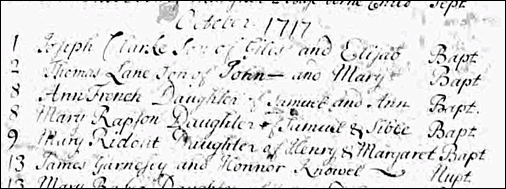 Child Sept.
October 1717
1 Joseph Clarke Son of Giles and Elizab Bapt
2 Thomas Lane Son of John and Mary Bapt
8 Ann French Daughter of Samuel and Ann Bapt.
8 Mary Rapson Daughter of Samuel & Sibee Bapt
9 Mary Ridout Daughter of Henry & Margaret Bapt
13 James Garnesey and Honnor Knowel Nupt.
13 Mary Daughter